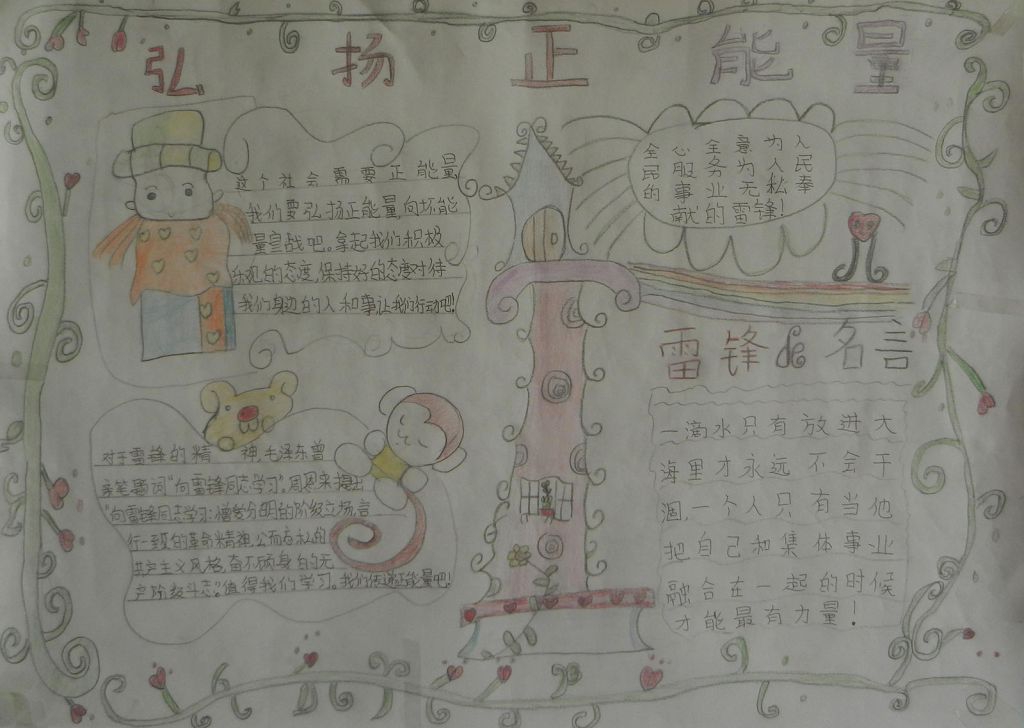 弘扬正能量
这个社会需要正能量
我们要弘扬正能量,向坏能
量宣战吧。拿起我们积极
乐观的态度,保持好的态度对待
我们身边的人和事让我们行动吧!
全心全意为人
民服务为人民
的事业无私奉
献的雷锋!
雷锋的名言
一滴水只有放进大
海里才永远不会干
涸,一个人只有当他
把自己和集体事业
融合在一起的时候
才能最有力量!
对于雷锋的精神毛泽东曾
亲笔题词“向雷锋同志学习”。周恩来提出
“向雷锋同志学习:憎爱分明的阶级立场,言
行一致的革命精神,公而忘私的
共产主义风格,奋不顾身的无
产阶级斗志。”值得我们学习。我们传递正能量吧!